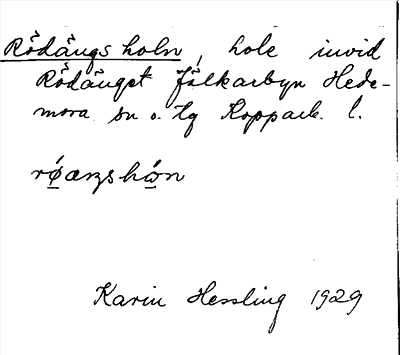 Rödängsholn, hole invid
Rödänget Jälkarbyn Hede-
mora sn o. tg Kopparb. l.
røæŋshωn
Karin Hessling 1929